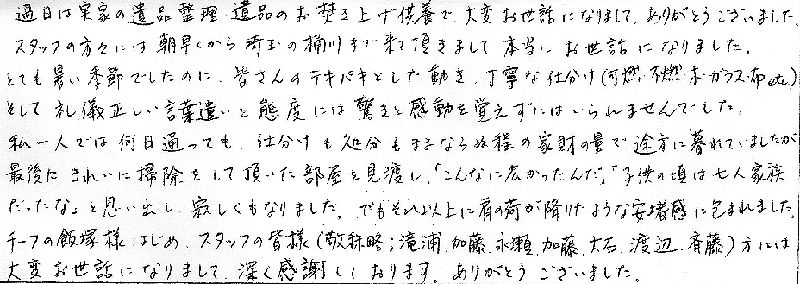 過日は実家の遺品整理、遺品のお焚き上げ供養で、大変お世話になりまして、ありがとうございました。
スタッフの方々には朝早くから埼玉の桶川まで来て頂きまして本当にお世話になりました。
とても暑い季節でしたのに、皆さんのテキパキとした動き、丁寧な仕分け(可燃、不燃、木、ガラス、布etc)
そして礼儀正しい言葉遣いと態度には驚きと感動を覚えずにはいられませんでした。
私一人では何日通っても、仕分けも処分もままならぬ程の家財の量で途方に暮れていましたが
最後にきれいに掃除をして頂いた部屋を見渡し、「こんなに広かったんだ」「子供の頃は七人家族
だったな」と思い出し、寂しくもなりました。でもそれ以上に肩の荷が降りたような安堵感に包まれました。
チーフの飯塚様はじめ、スタッフの皆様(敬称略;滝浦、加藤、永瀬、加藤、大石、渡辺、斉藤)方には
大変お世話になりまして、深く感謝しております。ありがとうございました。